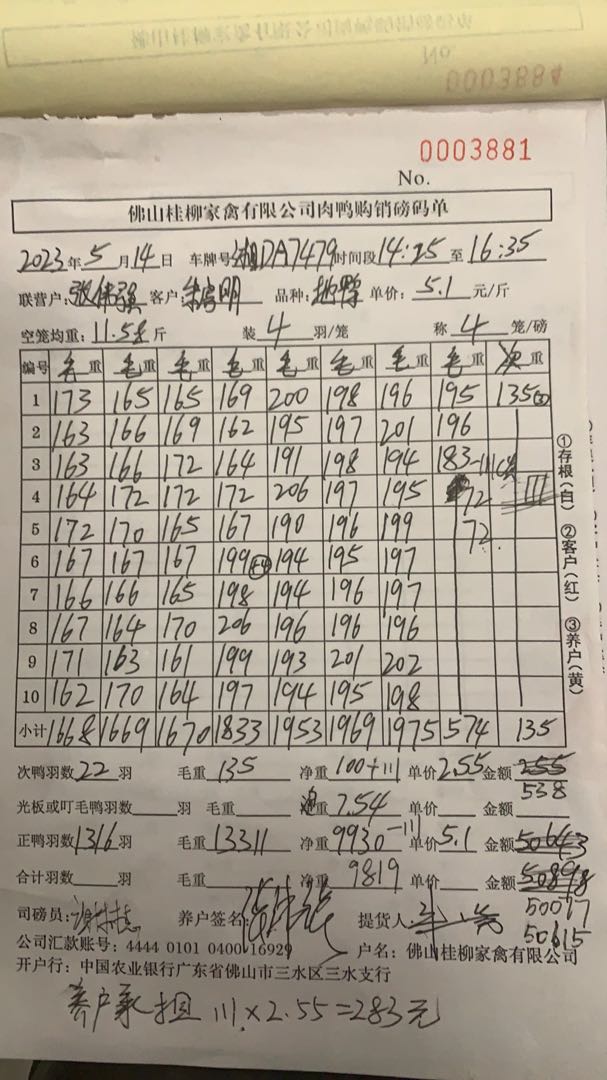 0003884
0003881
No.
佛山桂柳家禽有限公司肉鸭购销磅码单
2023年5月14日 车牌号湘DA7479时间段14:25至16:35
联营户: 张伟强 客户: 明 品种: 单价: 5.1元/斤
空笼均重: 11.58斤 装4羽/笼 称4笼/磅
编号 毛重 毛重 毛重 毛重 毛重 毛重 毛重 毛重 次重
1 173 165 165 169 200 198 196 195 135
2 163 166 169 162 195 197 201 196
3 163 166 172 164 191 198 194 183-111
4 164 172 172 172 206 197 195 72 111
5 172 170 165 167 190 196 199 72
6 167 167 167 199 194 195 197
7 166 166 165 198 194 196 197
8 167 164 170 206 196 196 196
9 171 163 161 199 193 201 202
10 162 170 164 197 194 195 198
小计 1668 1669 1670 1833 1953 1969 1975 574 135
①存根(白) ②客户(红) ③养户(黄)
次鸭羽数22羽 毛重135 净重100+111 单价2.55 金额255
538
光板或叮毛鸭羽数 羽 毛重 净重7.54 单价 金额
正鸭羽数1316羽 毛重13311 净重9930-111 单价5.1 金额50643
合计羽数 羽 毛重 净重9819 单价 金额50898
司磅员: 养户签名: 提货人: 50077
50615
公司汇款账号: 4444 0101 0400 16929 户名: 佛山桂柳家禽有限公司
开户行: 中国农业银行广东省佛山市三水区三水支行
养户承担 111×2.55=283元